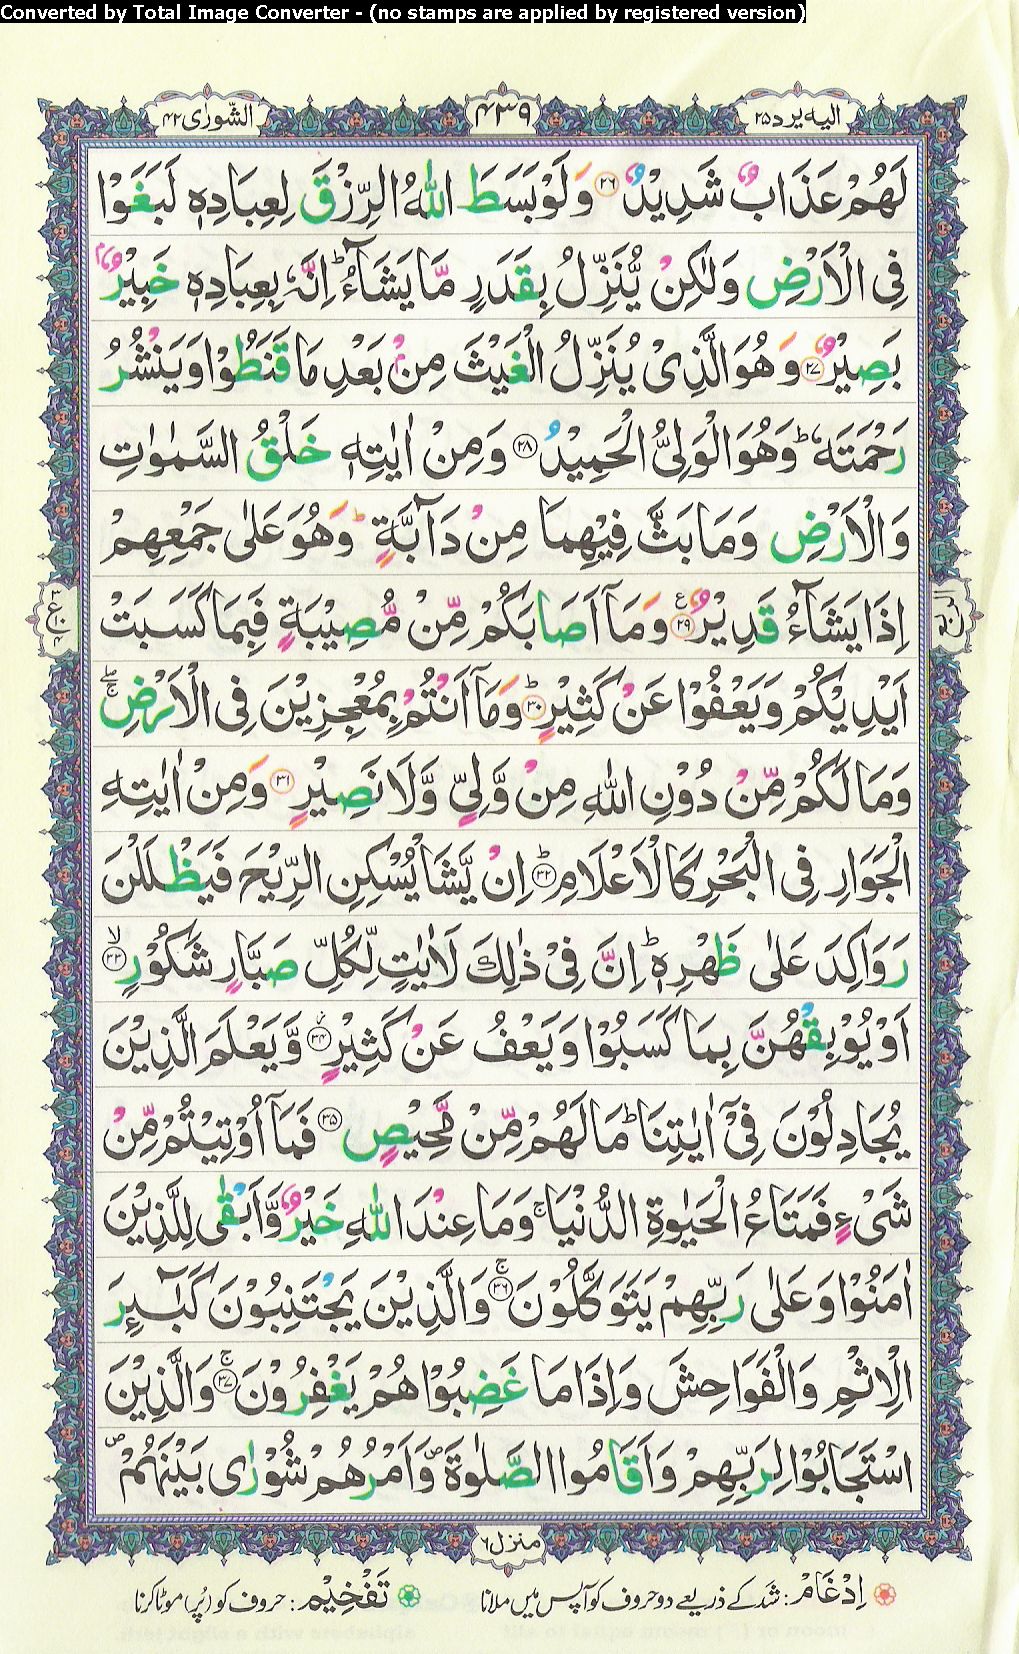 Converted by Total Image Converter - (no stamps are applied by registered version)
الیه یرد ۲۵
۴۳۹
الشّورٰی ۴۲
لَهُمْ عَذَابٌ شَدِيْدٌ ۲۶ وَلَوْ بَسَطَ اللّٰهُ الرِّزْقَ لِعِبَادِهٖ لَبَغَوْا
فِى الْاَرْضِ وَلٰكِنْ يُّنَزِّلُ بِقَدَرٍ مَّا يَشَآءُ ؕ اِنَّهٗ بِعِبَادِهٖ خَبِيْرٌۢ
بَصِيْرٌ ۲۷ وَهُوَ الَّذِىْ يُنَزِّلُ الْغَيْثَ مِنْۢ بَعْدِ مَا قَنَطُوْا وَيَنْشُرُ
رَحْمَتَهٗ ؕ وَهُوَ الْوَلِىُّ الْحَمِيْدُ ۲۸ وَمِنْ اٰيٰتِهٖ خَلْقُ السَّمٰوٰتِ
وَالْاَرْضِ وَمَا بَثَّ فِيْهِمَا مِنْ دَآبَّةٍ ؕ وَهُوَ عَلٰى جَمْعِهِمْ
اِذَا يَشَآءُ قَدِيْرٌ ۲۹ ع وَمَاۤ اَصَابَكُمْ مِّنْ مُّصِيْبَةٍ فَبِمَا كَسَبَتْ
اَيْدِيْكُمْ وَيَعْفُوْا عَنْ كَثِيْرٍ ؕ ۳۰ وَمَاۤ اَنْتُمْ بِمُعْجِزِيْنَ فِى الْاَرْضِ ۖۚ
وَمَا لَكُمْ مِّنْ دُوْنِ اللّٰهِ مِنْ وَّلِىٍّ وَّلَا نَصِيْرٍ ۳۱ وَمِنْ اٰيٰتِهِ
الْجَوَارِ فِى الْبَحْرِ كَالْاَعْلَامِ ؕ ۳۲ اِنْ يَّشَاْ يُسْكِنِ الرِّيْحَ فَيَظْلَلْنَ
رَوَاكِدَ عَلٰى ظَهْرِهٖ ؕ اِنَّ فِىْ ذٰلِكَ لَاٰيٰتٍ لِّكُلِّ صَبَّارٍ شَكُوْرٍ ۙ ۳۳
اَوْ يُوْبِقْهُنَّ بِمَا كَسَبُوْا وَيَعْفُ عَنْ كَثِيْرٍ ۳۴ وَّيَعْلَمَ الَّذِيْنَ
يُجَادِلُوْنَ فِىْۤ اٰيٰتِنَا ؕ مَا لَهُمْ مِّنْ مَّحِيْصٍ ۳۵ فَمَاۤ اُوْتِيْتُمْ مِّنْ
شَىْءٍ فَمَتَاعُ الْحَيٰوةِ الدُّنْيَا ۚ وَمَا عِنْدَ اللّٰهِ خَيْرٌ وَّاَبْقٰى لِلَّذِيْنَ
اٰمَنُوْا وَعَلٰى رَبِّهِمْ يَتَوَكَّلُوْنَ ۚ ۳۶ وَالَّذِيْنَ يَجْتَنِبُوْنَ كَبٰٓئِرَ
الْاِثْمِ وَالْفَوَاحِشَ وَاِذَا مَا غَضِبُوْا هُمْ يَغْفِرُوْنَ ۚ ۳۷ وَالَّذِيْنَ
اسْتَجَابُوْا لِرَبِّهِمْ وَاَقَامُوا الصَّلٰوةَ ۪ وَاَمْرُهُمْ شُوْرٰى بَيْنَهُمْ ۪
منزل ۶
اِدْغَام : شد کے ذریعے دو حروف کو آپس میں ملانا
تَفْخِيْم : حروف کو (پُر) موٹا کرنا